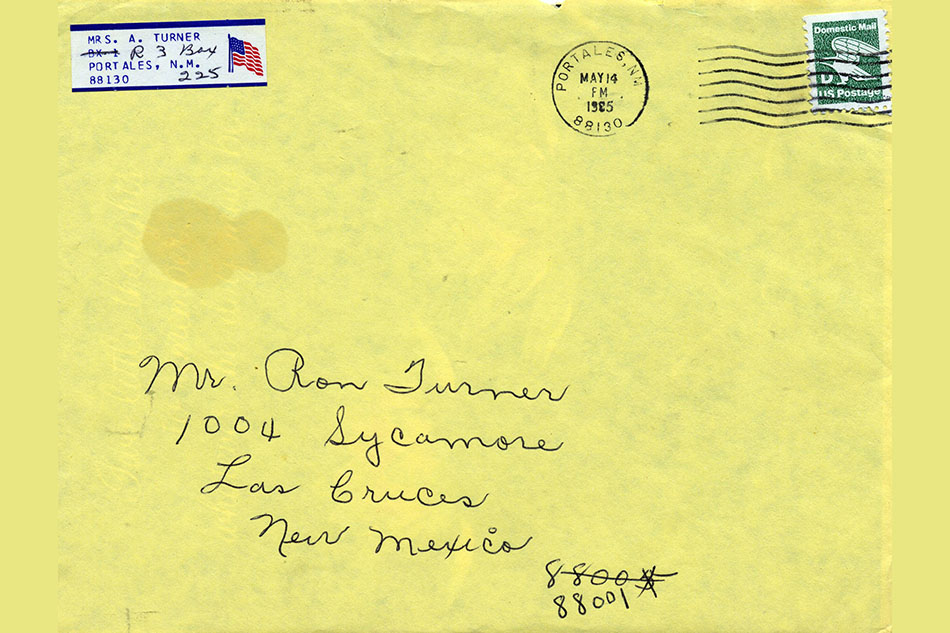 MRS. A. TURNER
BX. 1 R 3 Box
PORTALES, N.M. 225
88130
PORTALES, NM
MAY 14
PM
1985
88130
Domestic Mail
US Postage
Mr. Ron Turner
1004 Sycamore
Las Cruces
New Mexico
8800
88001